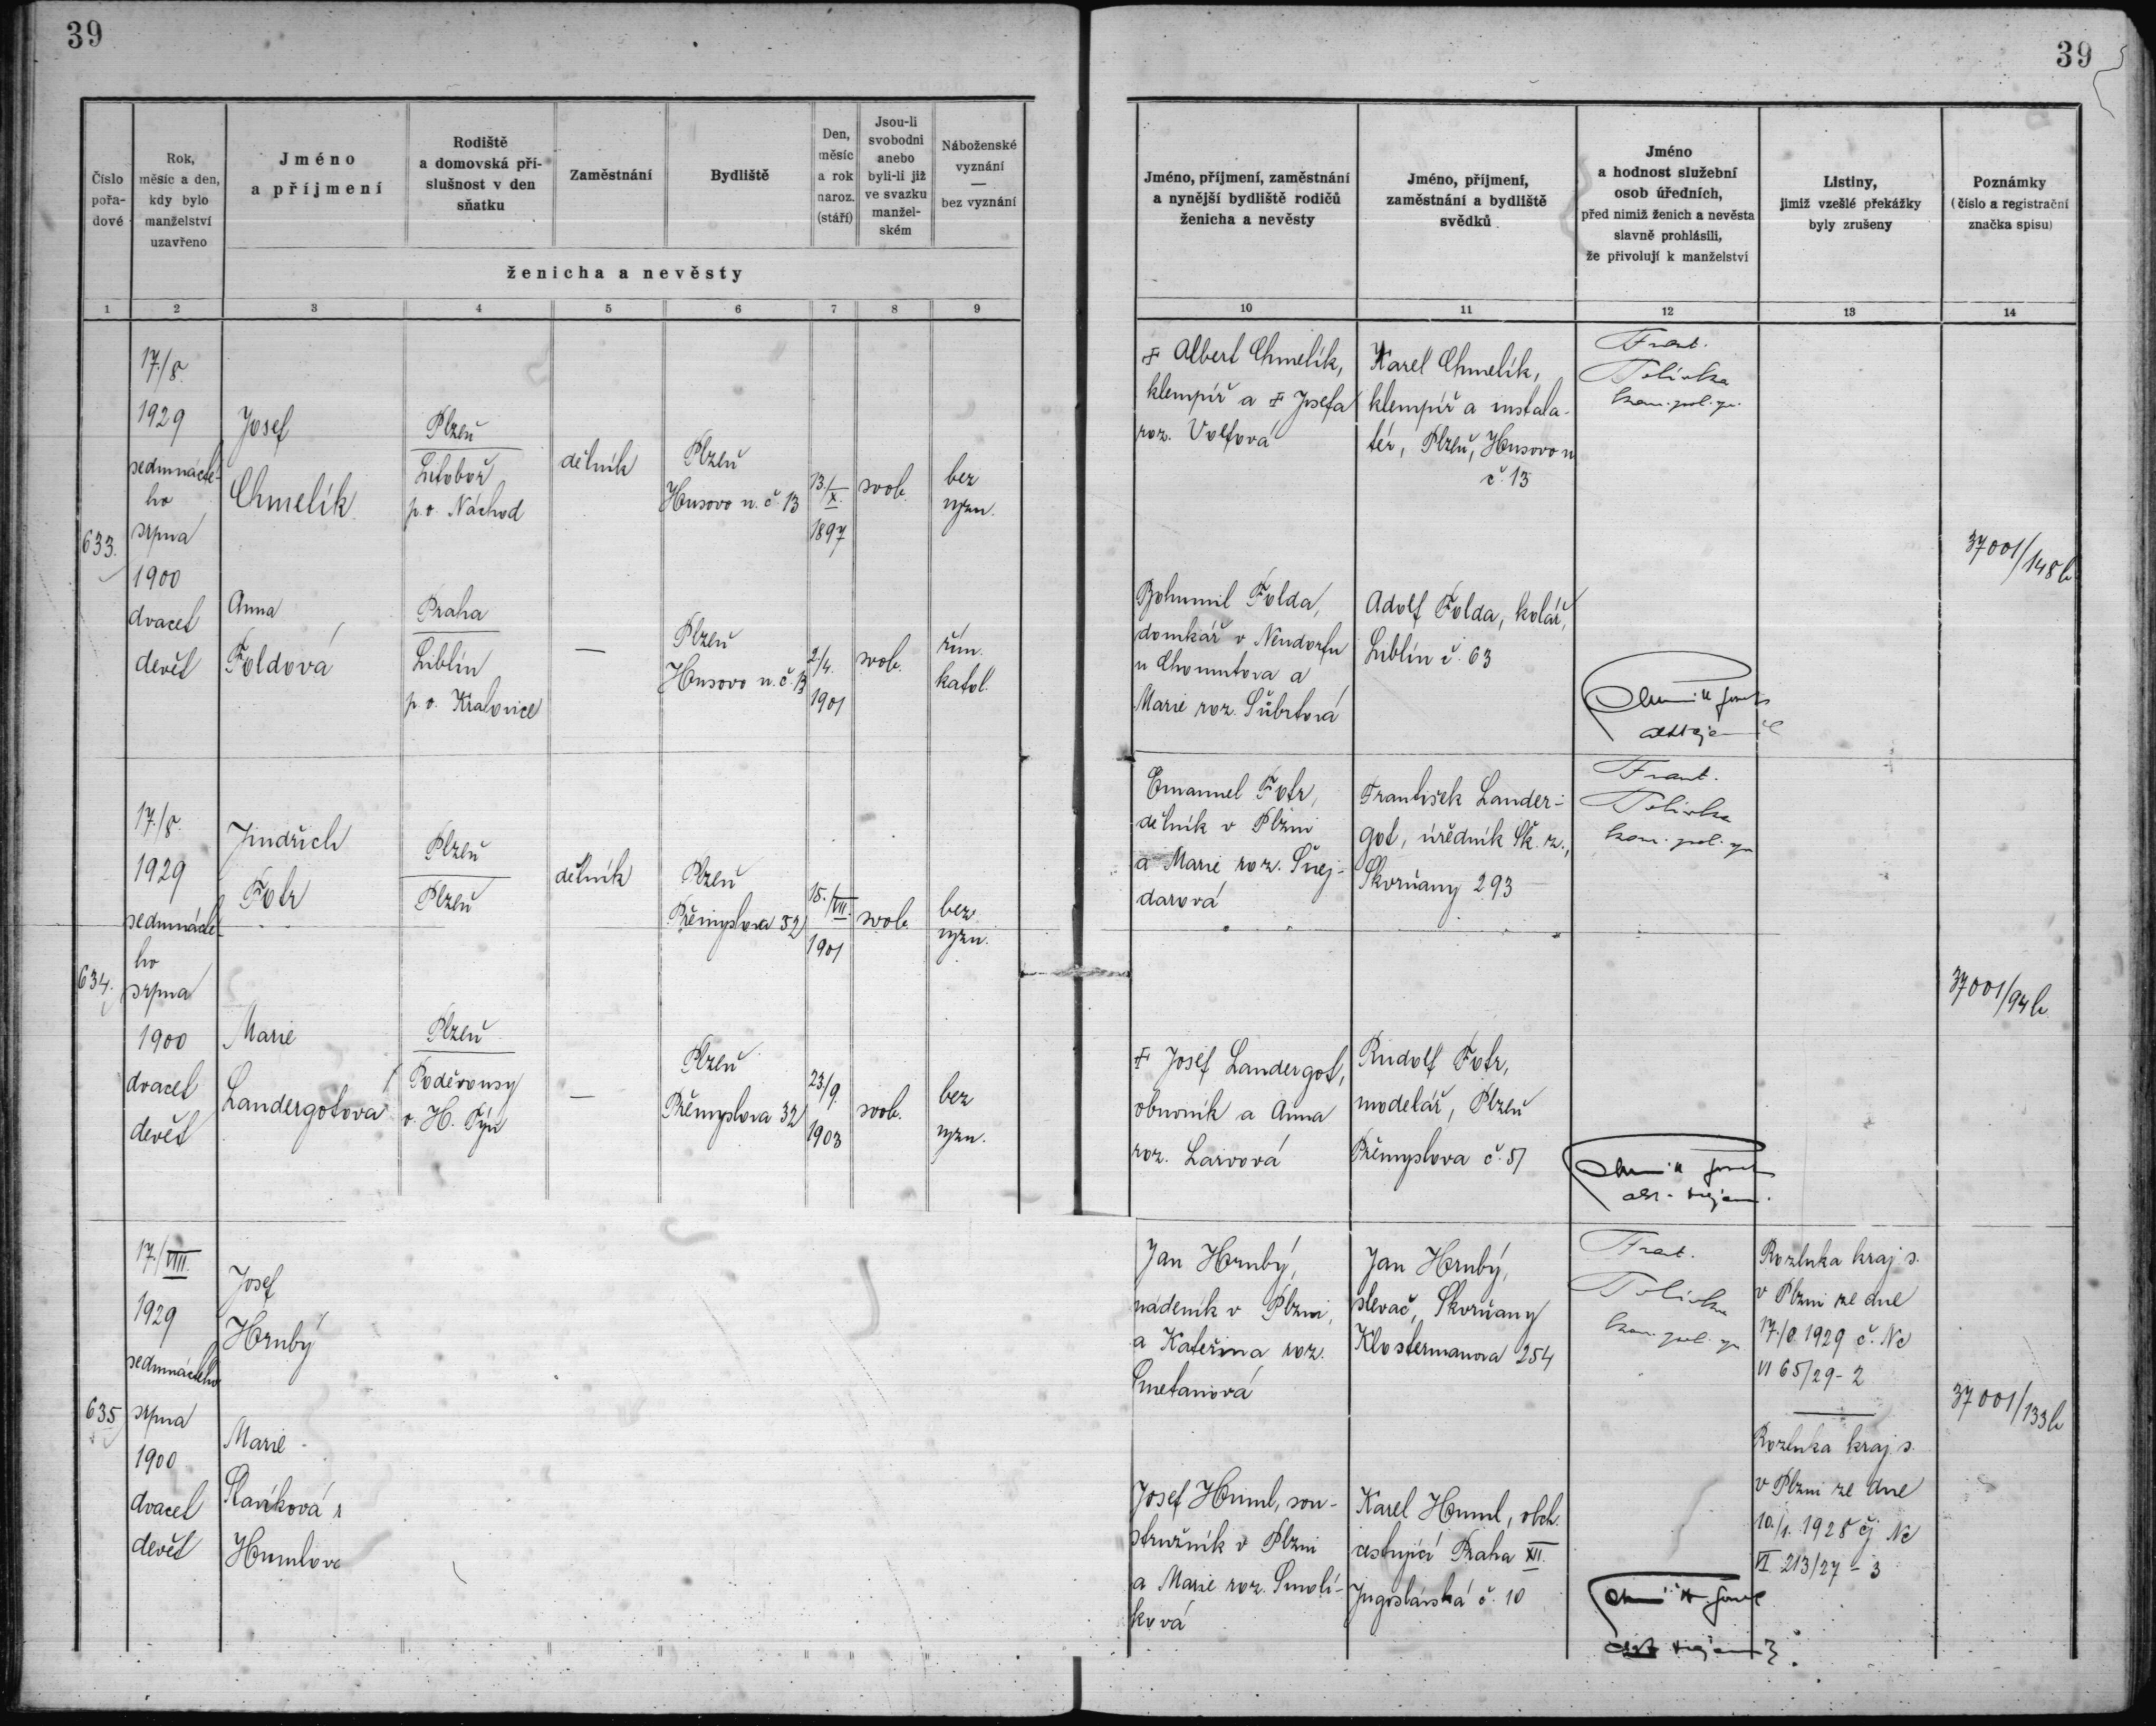 39
39
Číslo pořa-dové
Rok, měsíc a den, kdy bylo manželství uzavřeno
Jméno a příjmení
Rodiště a domovská pří-slušnost v den sňatku
Zaměstnání
Bydliště
Den, měsíc a rok naroz. (stáří)
Jsou-li svobodni anebo byli-li již ve svazku manžel-ském
Náboženské vyznání — bez vyznání
ženicha a nevěsty
Jméno, příjmení, zaměstnání a nynější bydliště rodičů ženicha a nevěsty
Jméno, příjmení, zaměstnání a bydliště svědků
Jméno a hodnost služební osob úředních, před nimiž ženich a nevěsta slavně prohlásili, že přivolují k manželství
Listiny, jimiž vzešlé překážky byly zrušeny
Poznámky (číslo a registrační značka spisu)
1 2 3 4 5 6 7 8 9 10 11 12 13 14
633.
17./8.
1929
sedmnácté-
ho
srpna
1900
dvacet
devět
Josef
Chmelík
Plzeň
Litoboř
p. o. Náchod
dělník
Plzeň
Husovo n. č. 13
13./X.
1897
svob.
bez
vyzn.
Anna
Foldová
Praha
Liblín
p. o. Kralovice
—
Plzeň
Husovo n. č. 13
2/4.
1901
svob.
řím.
katol.
‡ Albert Chmelík,
klempíř a ‡ Josefa
roz. Volfová
Karel Chmelík,
klempíř a instala-
tér, Plzeň, Husovo n
č. 13
Frant.
kom. pol. spr.
Bohumil Folda,
domkář v Neudorfu
u Chomutova a
Marie roz. Šůbrtová
Adolf Folda, kolář,
Liblín č. 63
37001/148b
634.
17./8.
1929
sedmnácté-
ho
srpna
1900
dvacet
devět
Jindřich
Fotr
Plzeň
Plzeň
dělník
Plzeň
Přemyslova 32
15./VII.
1901
svob.
bez
vyzn.
Marie
Landergotová
Plzeň
Poděvousy
o. H. Týn
—
Plzeň
Přemyslova 32
23./9.
1903
svob.
bez
vyzn.
Emanuel Fotr,
dělník v Plzni
a Marie roz. Šnej-
darová
František Lander-
got, úředník Šk. z.,
Skvrňany 293
Frant.
kom. pol. spr.
‡ Josef Landergot,
obuvník a Anna
roz. Larvová
Rudolf Fotr,
modelář, Plzeň
Přemyslova č. 51
37001/94b
635
17./VIII.
1929
sedmnáctého
srpna
1900
dvacet
devět
Josef
Hrubý
Marie
Slavíková r
Humlova
Jan Hrubý,
nádeník v Plzni,
a Kateřina roz.
Smetanová
Jan Hrubý,
slevač, Skvrňany
Klostermanova 254
Frant.
kom. pol. spr.
Rozluka kraj s.
v Plzni ze dne
17./8. 1929 č. Nc
VI 65/29-2
Josef Huml, sou-
stružník v Plzni
a Marie roz. Smolí-
ková
Karel Huml, obch.
cestující Praha XII.
Jugoslávská č. 10
Rozluka kraj s.
v Plzni ze dne
10./1. 1928 čj Nc
VI 213/27-3
37001/133b